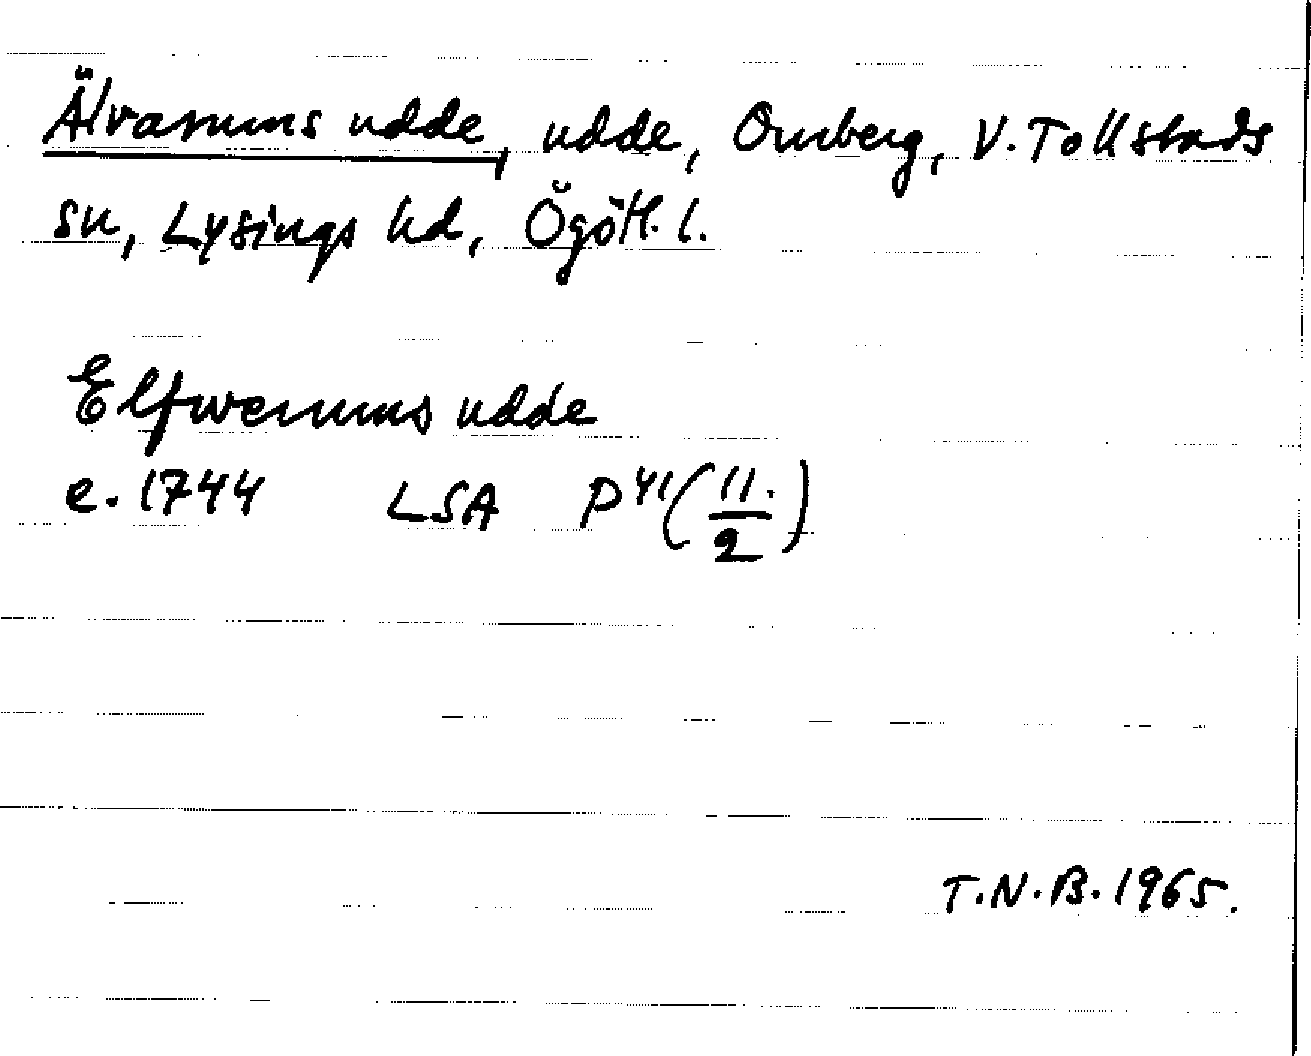 Älvarums udde, udde, Omberg, V. Tollstads
sn, Lysings hd, Ögötl. l.
Elfwerums udde
e. 1744 LSA P41 (11./2)
T.N.B. 1965.